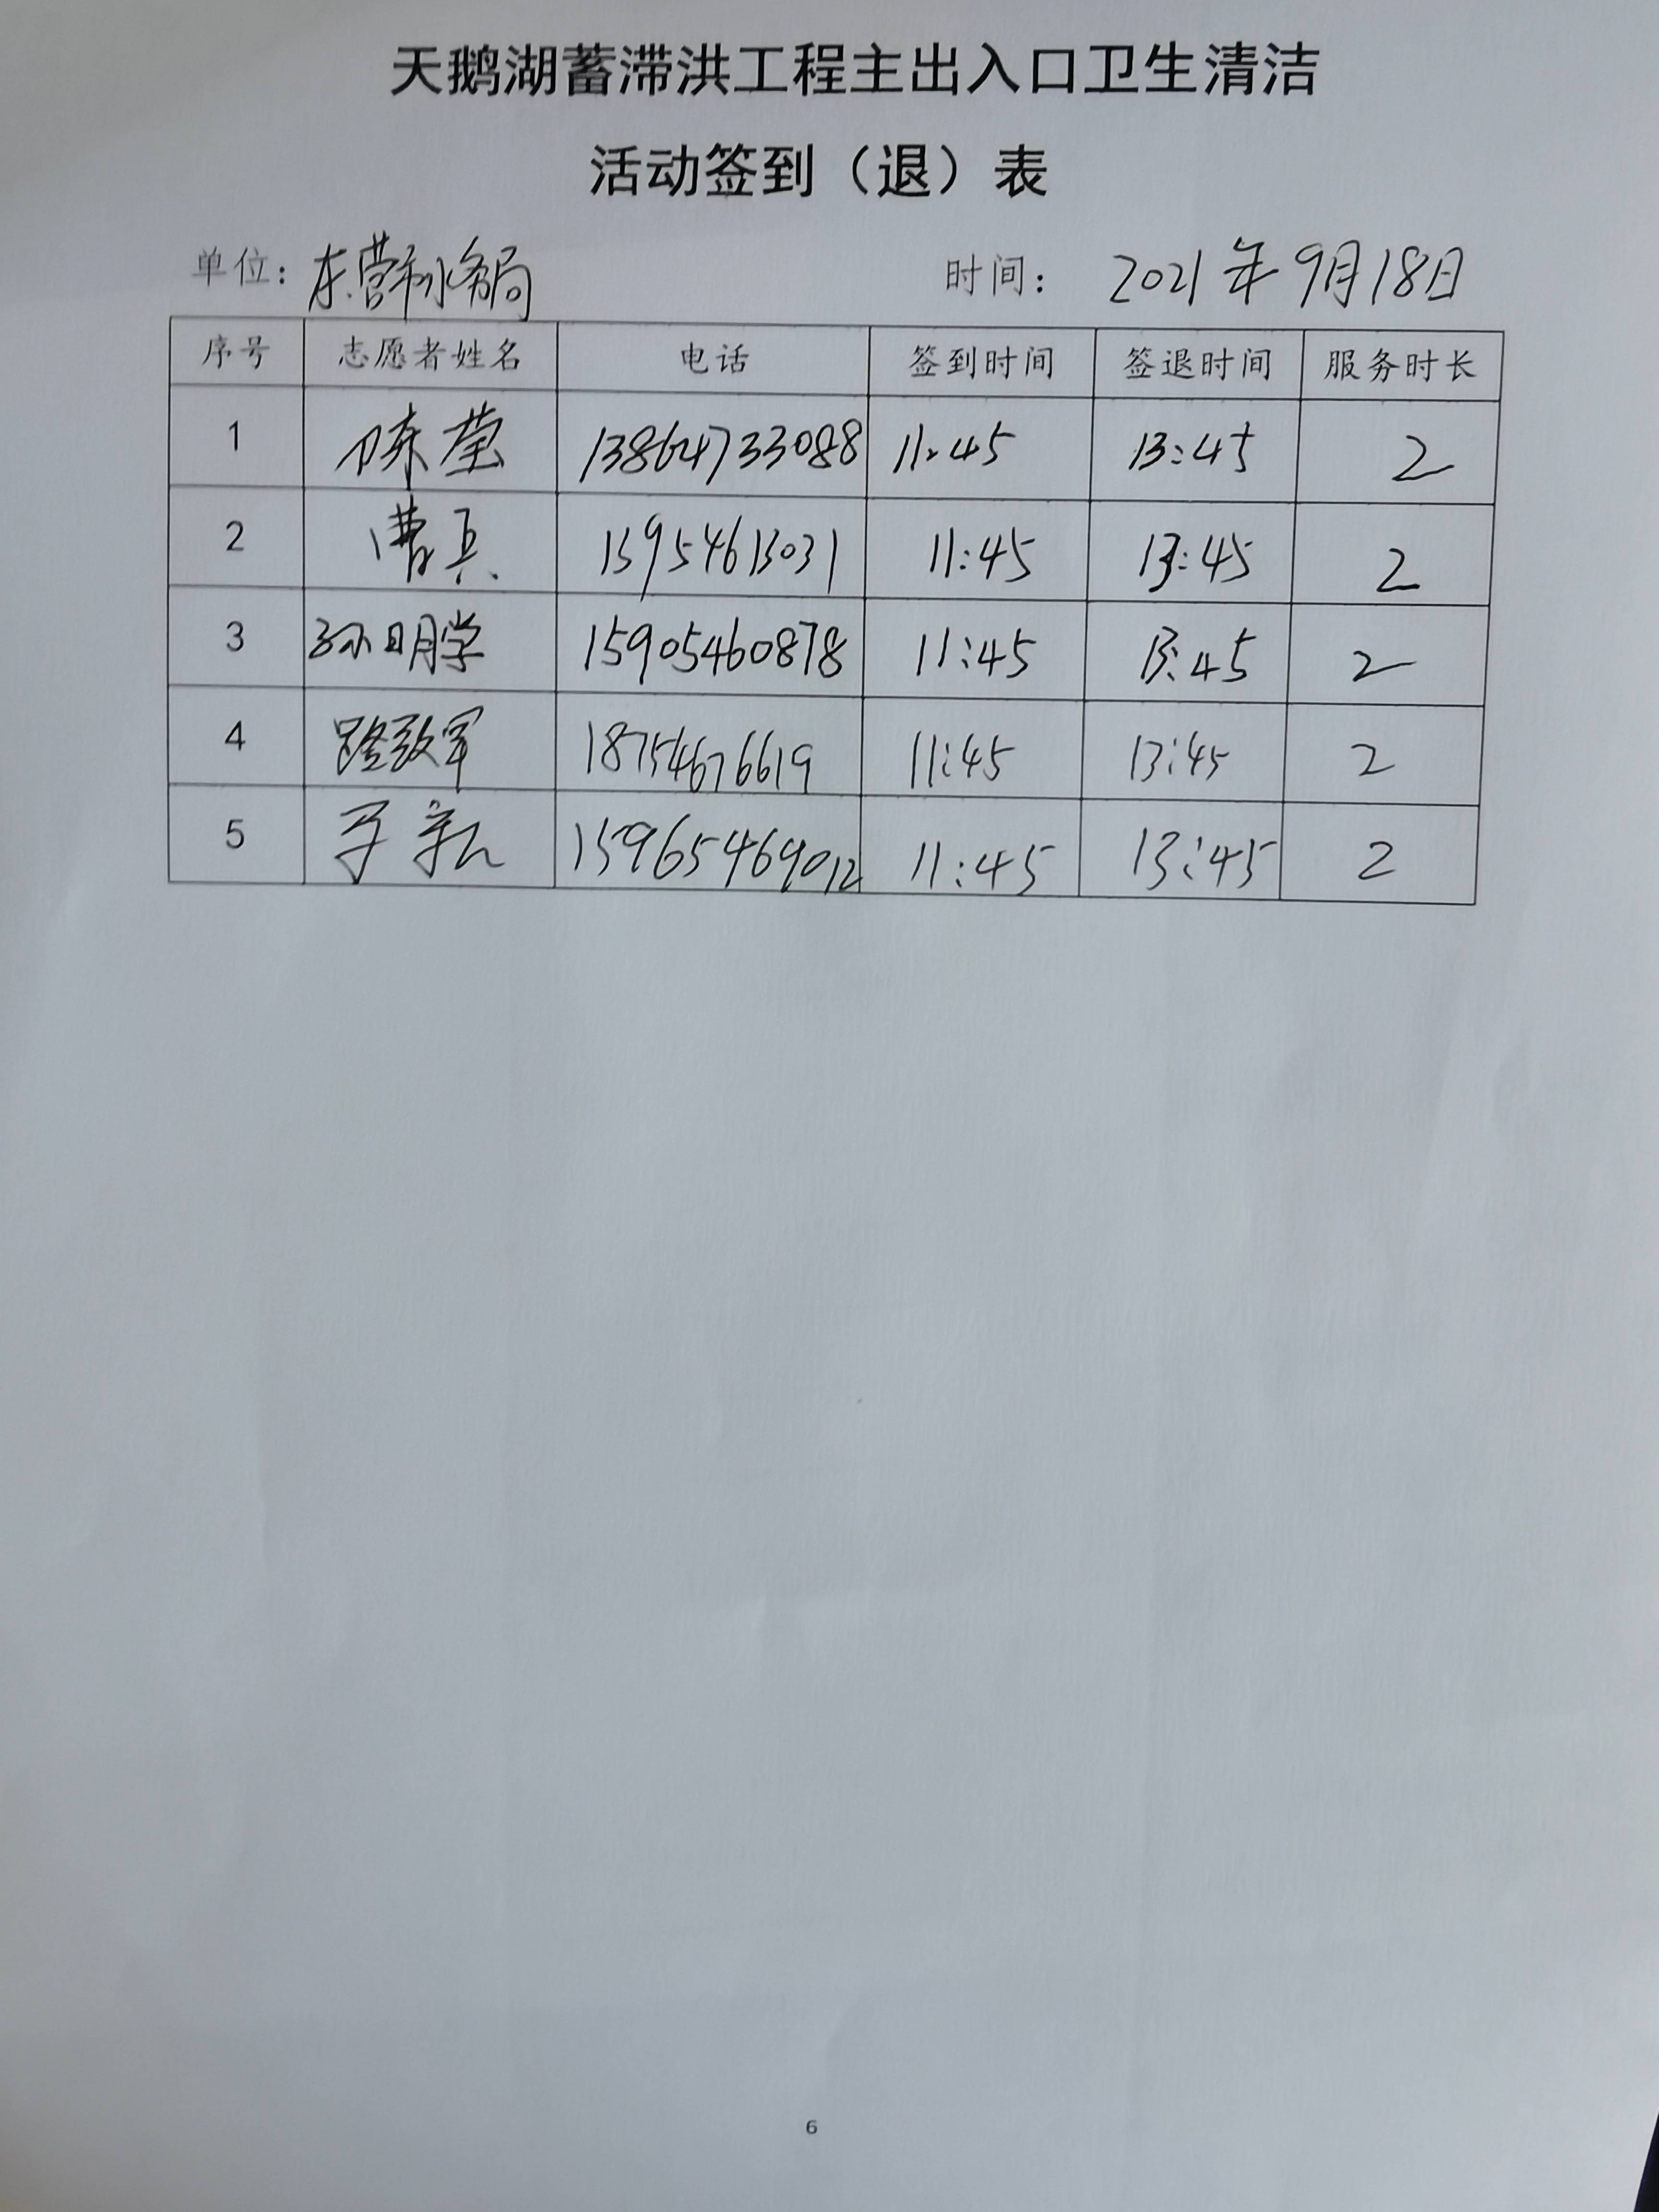 天鹅湖蓄滞洪工程主出入口卫生清洁
活动签到（退）表
单位：东营市水务局 时间： 2021年9月18日
序号 志愿者姓名 电话 签到时间 签退时间 服务时长
1 陈莹 13864733088 11:45 13:45 2
2 曹兵 13954613031 11:45 13:45 2
3 孙明学 15905460878 11:45 13:45 2
4 路致军 18754676619 11:45 13:45 2
5 于 15965469012 11:45 13:45 2
6